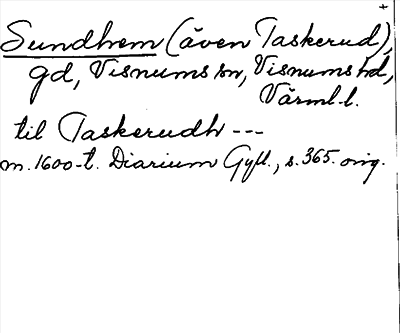 +
Sundhem (även Taskerud),
gd, Visnums sn, Visnums hd,
Värml. l.
til Taskerudh ---
m. 1600-t. Diarium Gyll., s. 365. orig.